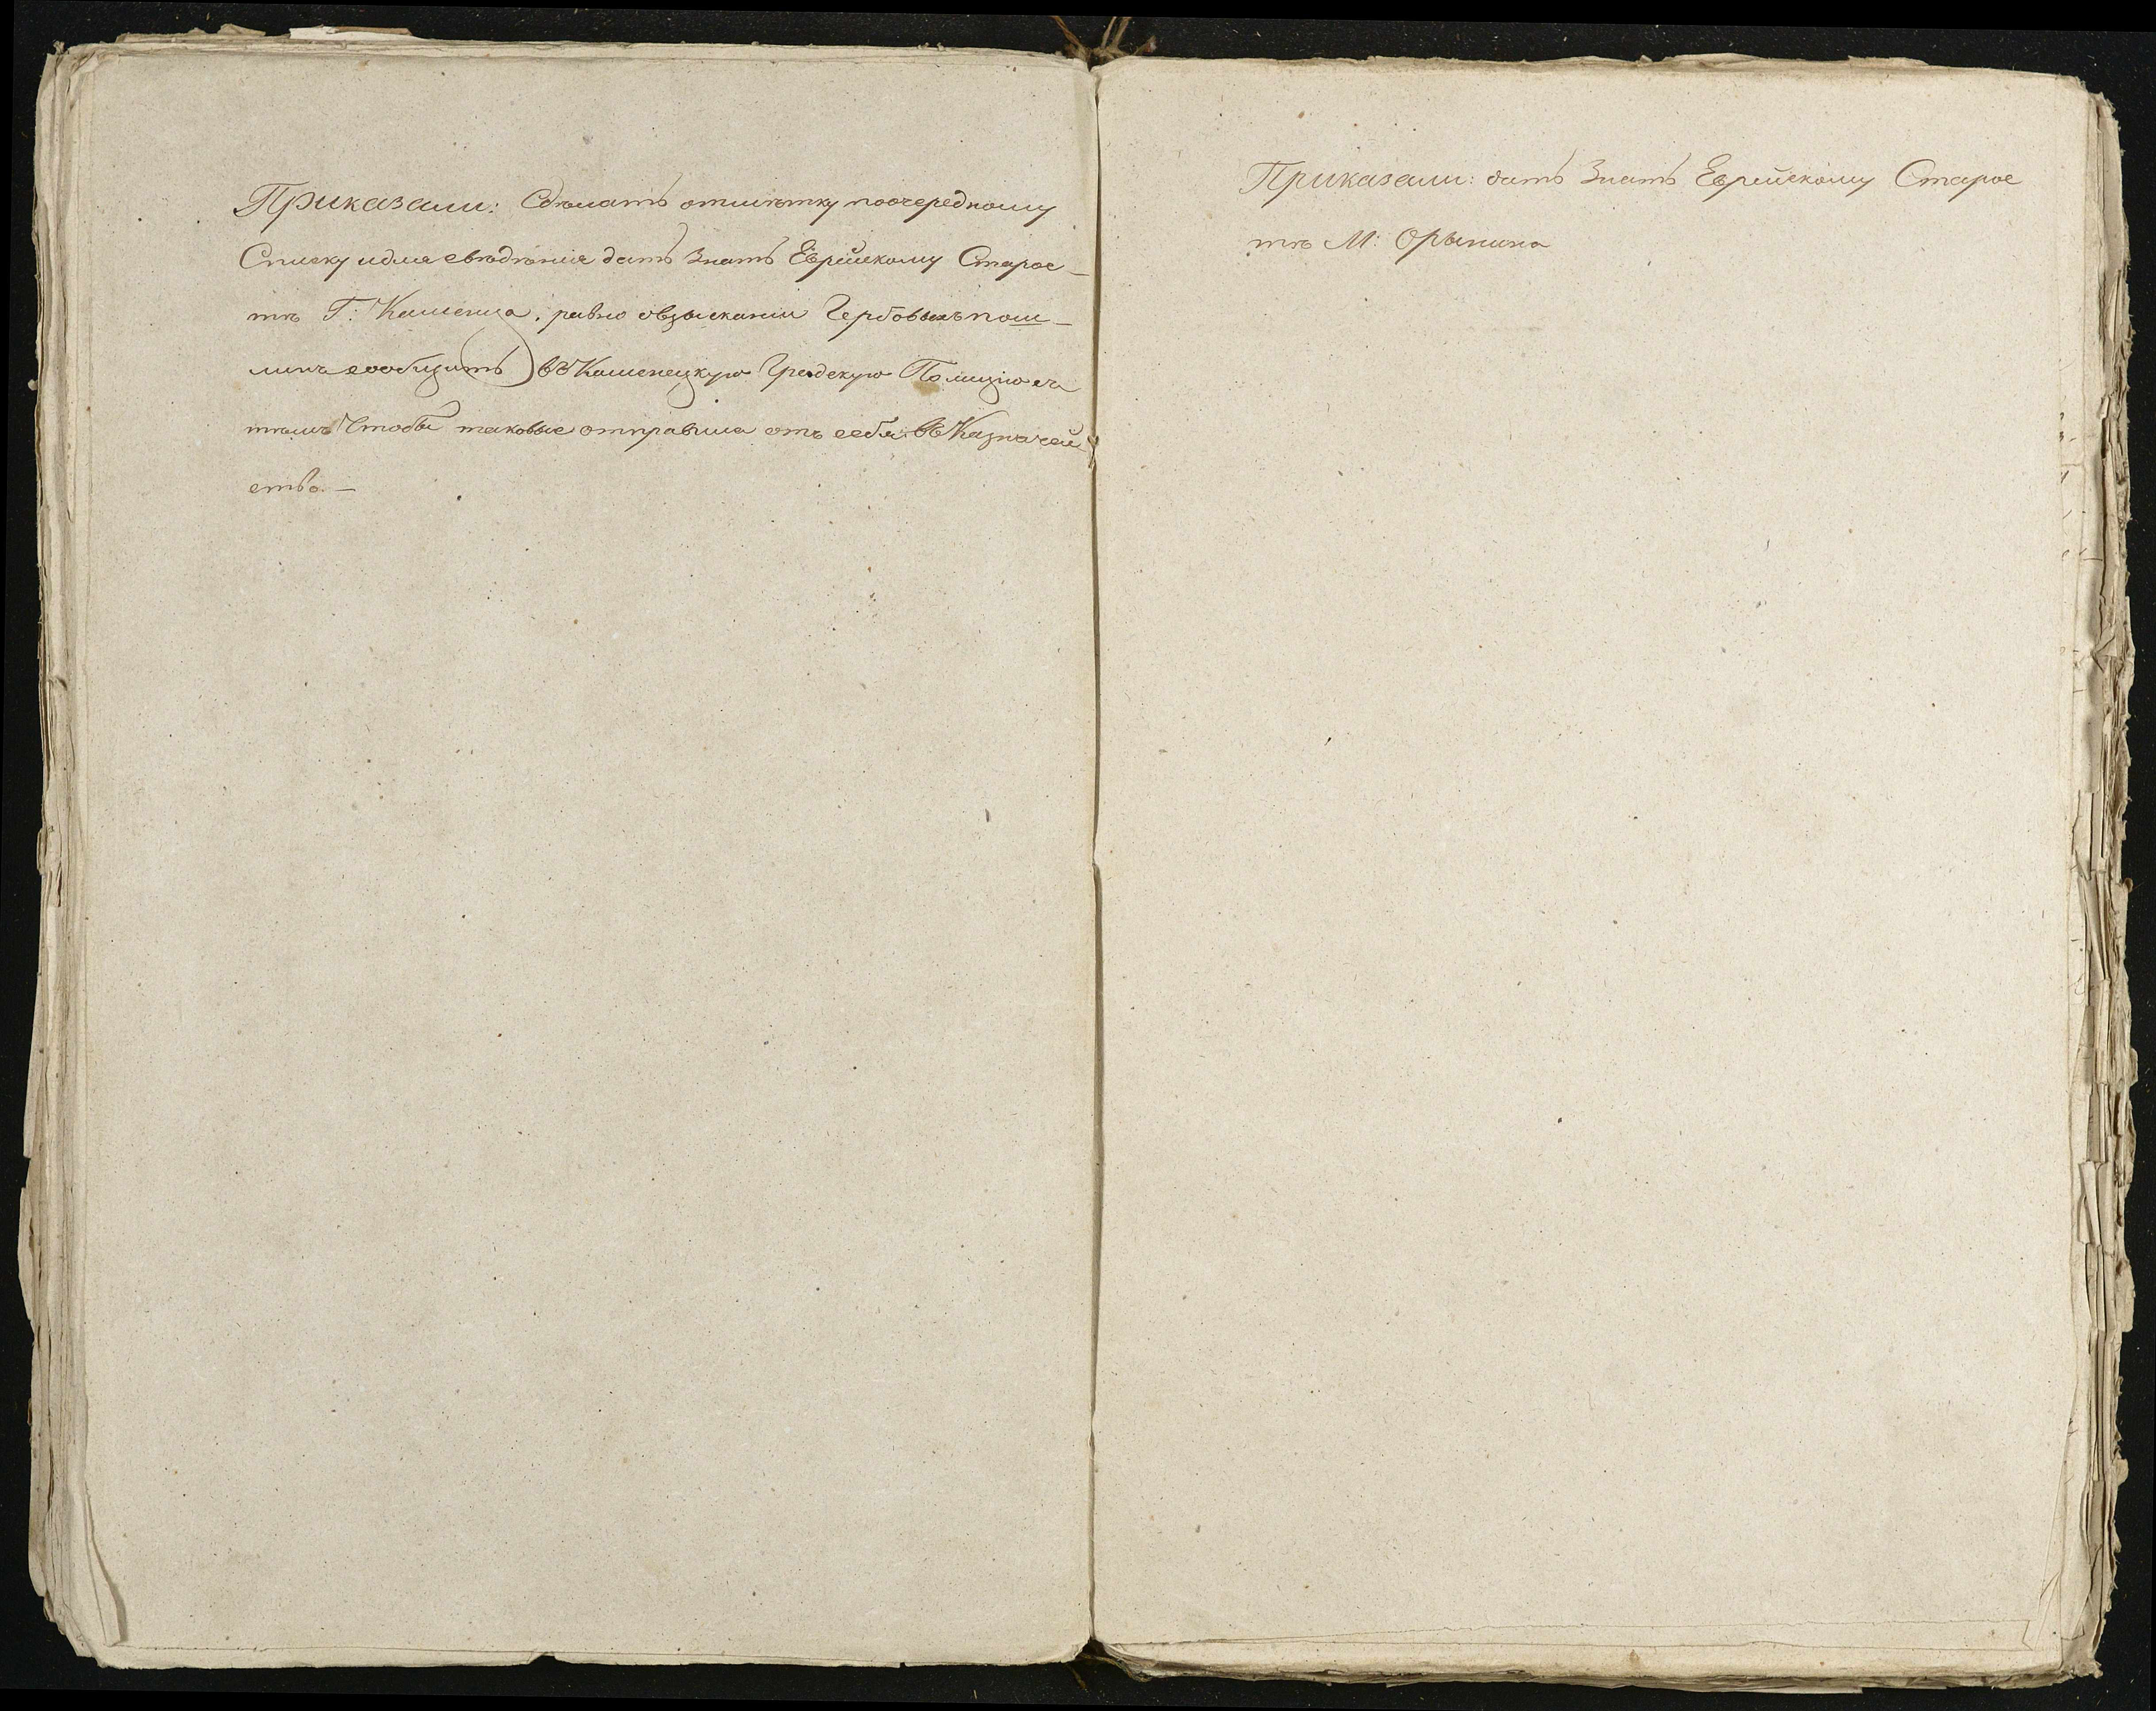 Приказали: Сдѣлать отмѣтку поочередному
Списку идля свѣдѣнія дать Знать Еврейскому Старос-
тѣ Г: Каменца, равно овзысканіи Гербовыхъ пош-
линъ сообщить въ Каменецкую Градскую Полицію съ
тѣмъ Чтобы таковые отправила отъ себя въ Казначей
ство.—
Приказали: дать Знать Еврейскому Старос
тѣ М: Орынина